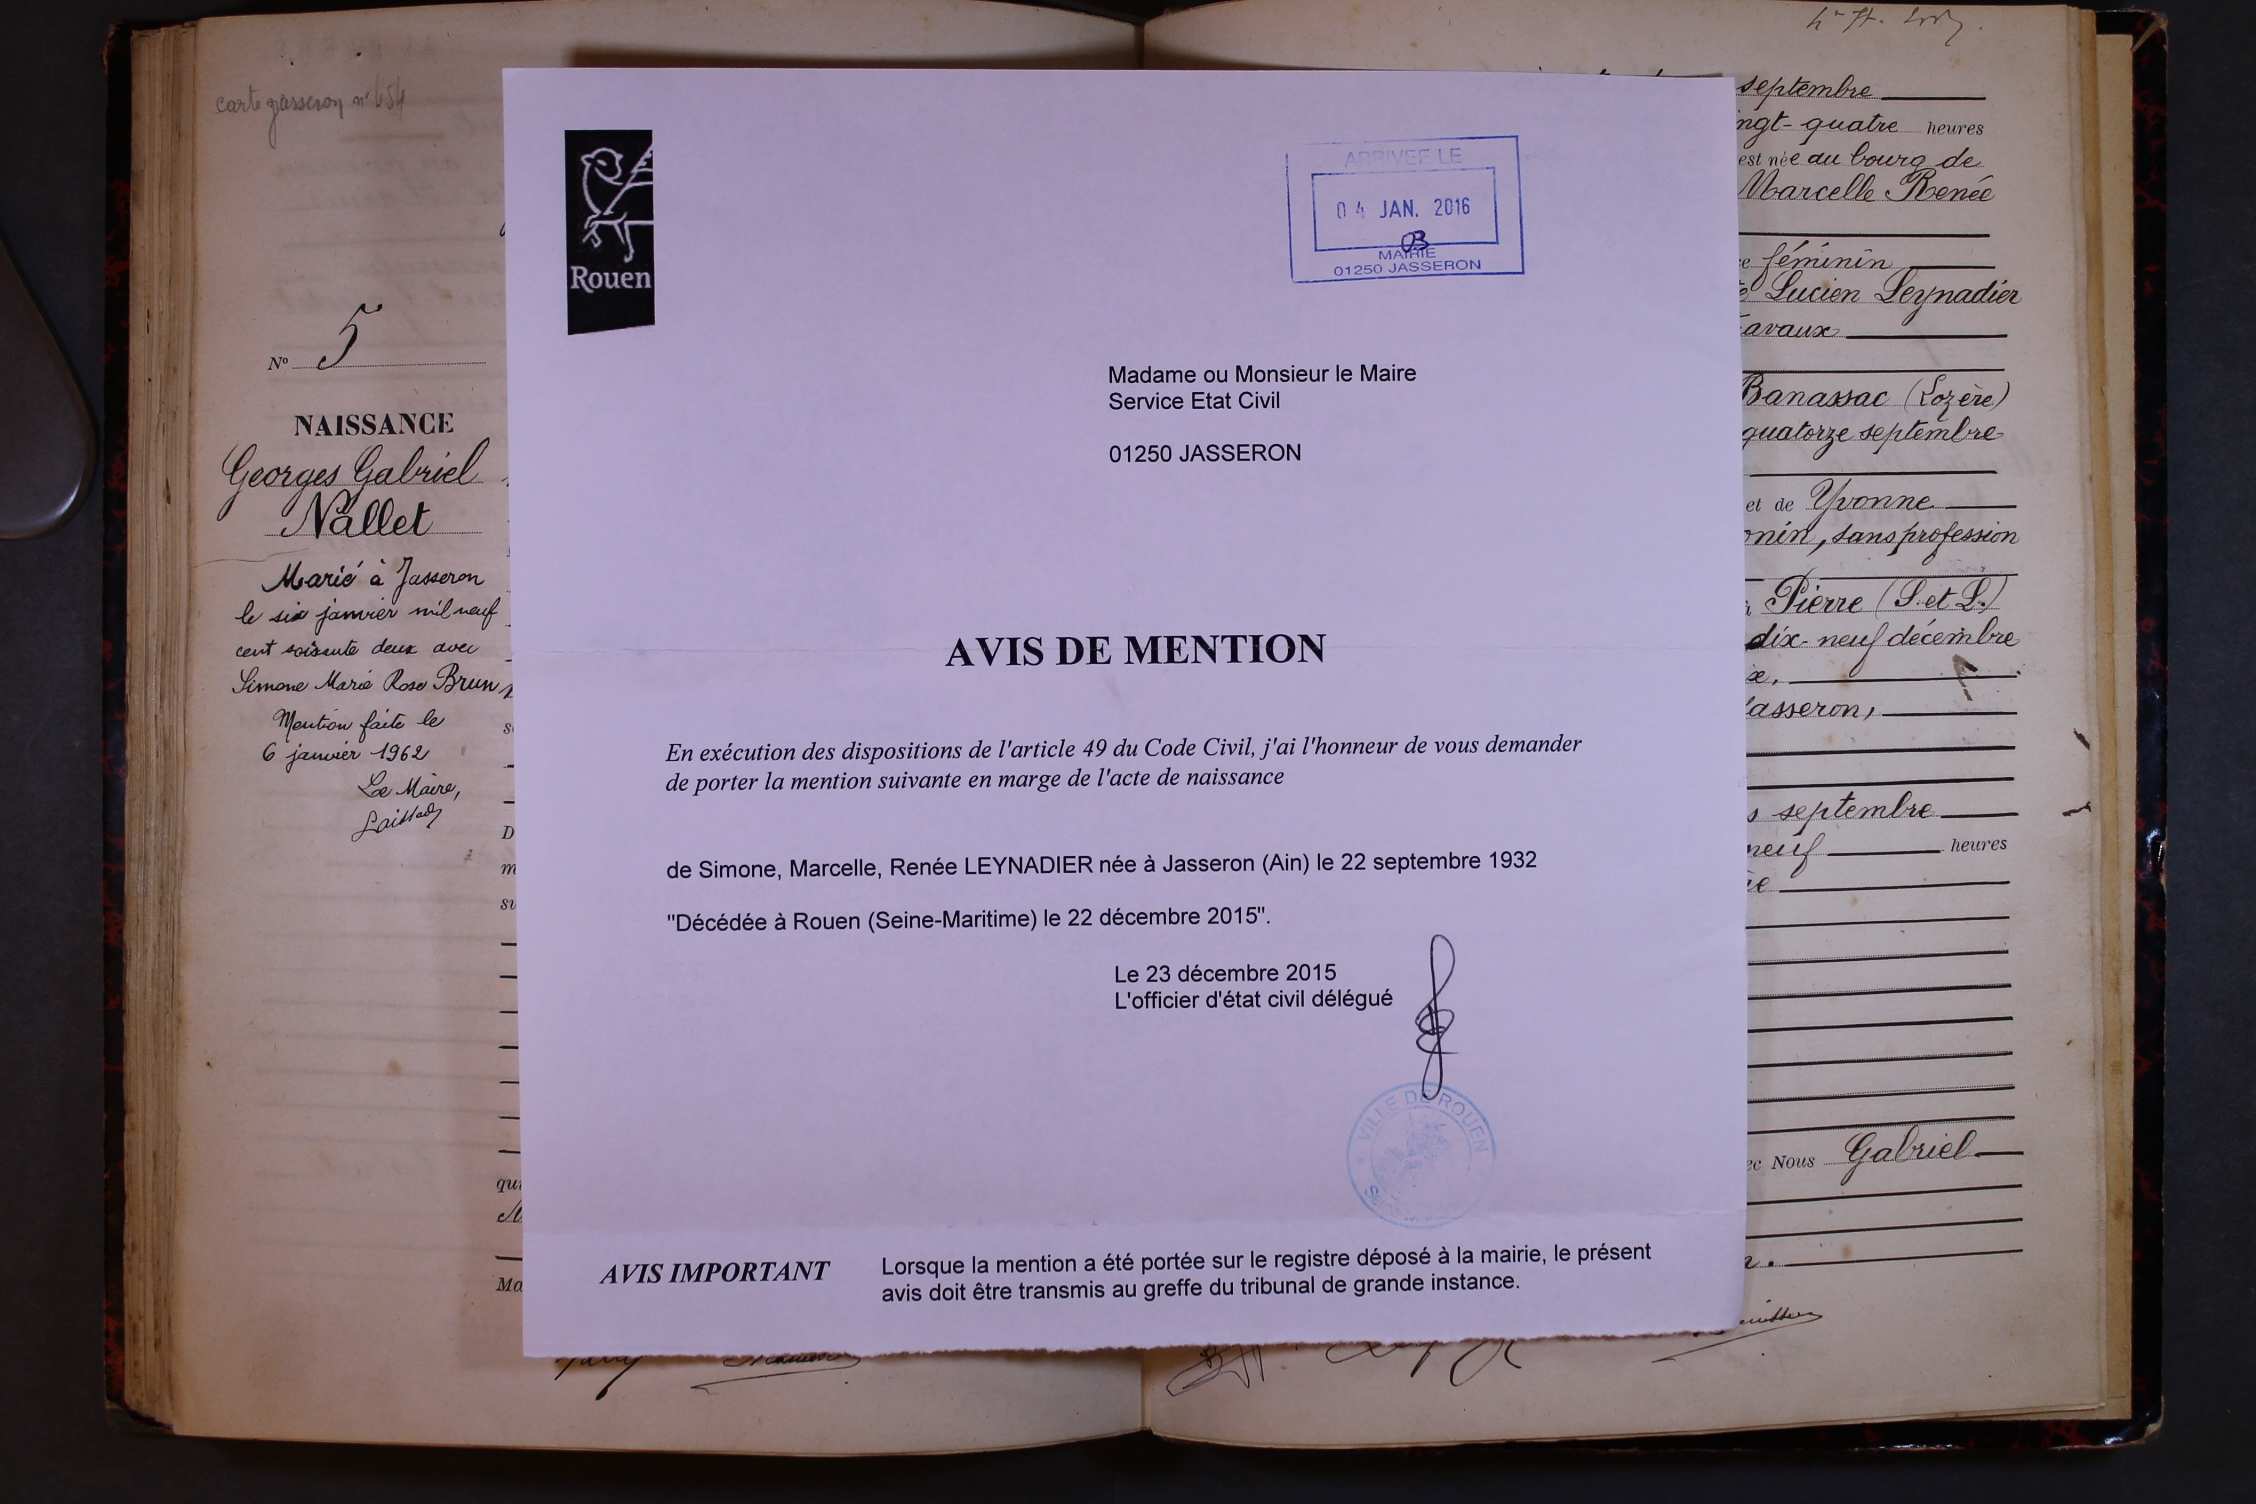 carte jasseron n° 654
N° 5
NAISSANCE
Georges Gabriel
Nallet
Marié à Jasseron
le six janvier mil neuf
cent soixante deux avec
Simone Marie Rose Brun
Mention faite le
6 janvier 1962
Le Maire,
Rouen
ARRIVEE LE
04 JAN. 2016
MAIRIE
01250 JASSERON
Madame ou Monsieur le Maire
Service Etat Civil
01250 JASSERON
AVIS DE MENTION
En exécution des dispositions de l'article 49 du Code Civil, j'ai l'honneur de vous demander
de porter la mention suivante en marge de l'acte de naissance
de Simone, Marcelle, Renée LEYNADIER née à Jasseron (Ain) le 22 septembre 1932
"Décédée à Rouen (Seine-Maritime) le 22 décembre 2015".
Le 23 décembre 2015
L'officier d'état civil délégué
VILLE DE ROUEN
AVIS IMPORTANT
Lorsque la mention a été portée sur le registre déposé à la mairie, le présent
avis doit être transmis au greffe du tribunal de grande instance.
septembre
ngt-quatre heures
est née au bourg de
Marcelle Renée
féminin
Lucien Leynadier
avaux
Banassac (Lozère)
quatorze septembre
et de Yvonne
onin, sans profession
Pierre (S. et L.)
dix-neuf décembre
asseron,
septembre
neuf heures
ec Nous Gabriel